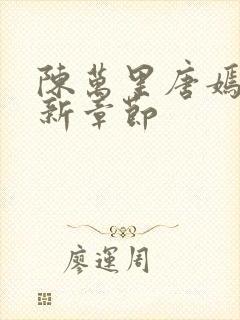 陳萬里唐嫣
新章節
廖運周